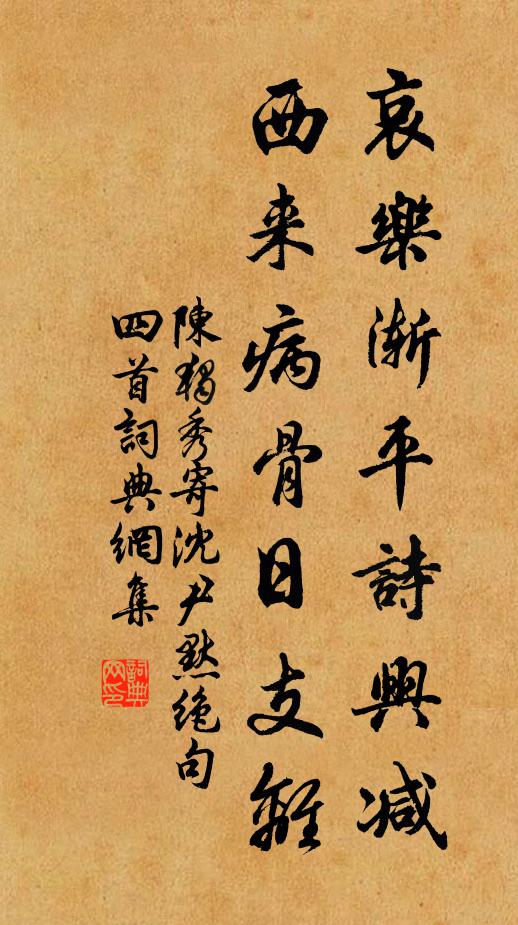 哀樂漸平詩興減
西来病骨日支離
陳獨秀寄沈尹默绝句
四首詞典網集
詞典网印